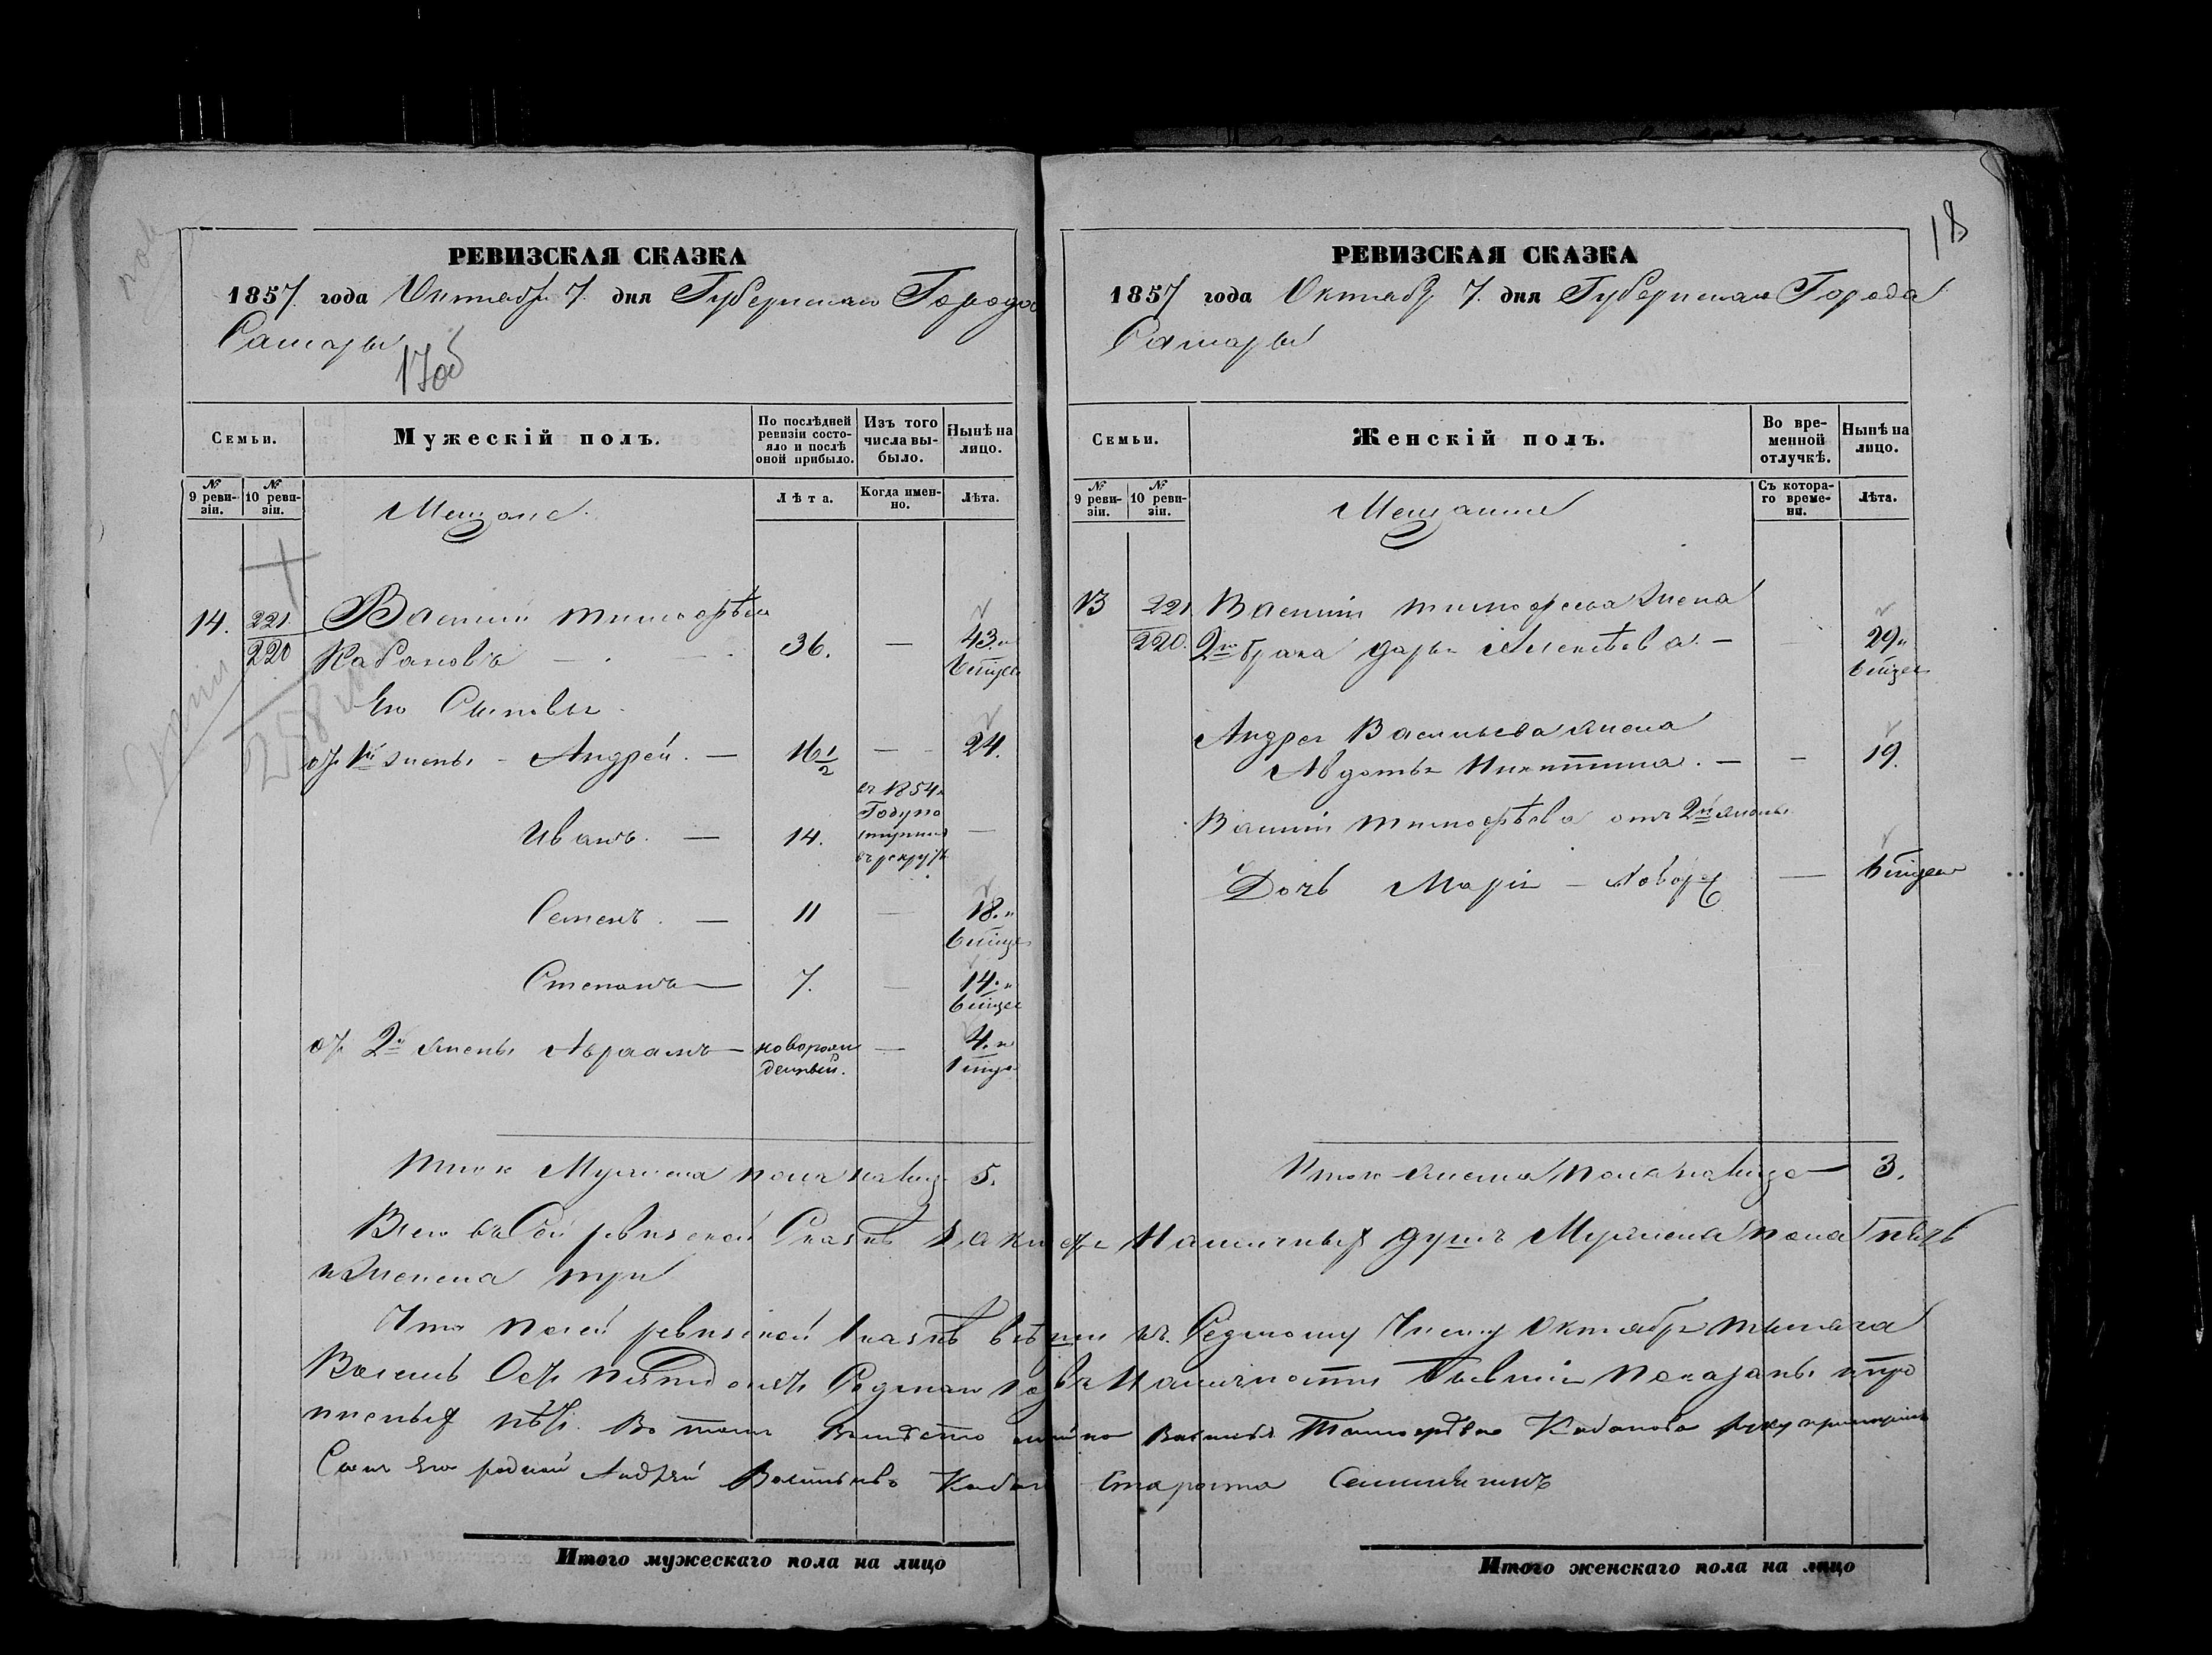 РЕВИЗСКАЯ СКАЗКА
1857. года Октября 7. дня Губернскаго Города
Самары
17об
Семьи.
Мужескій полъ.
По послѣдней ревизіи состояло и послѣ оной прибыло.
Изъ того числа выбыло.
Нынѣ на лицо.
№ 9 ревизіи.
№ 10 ревизіи.
Мещане.
Лѣта.
Когда именно.
Лѣта.
14.
221
220
Василий Тимофѣевъ
Кабановъ — 36. — 43. и
6 мѣсяц
Его Сыновья
отъ 1й жены - Андрей. — 16 1/2 — 24.
Иванъ. — 14. въ 1854м Году поступилъ въ рекруты —
Семенъ. — 11 — 18. и
6 мѣсяц
Степанъ — 7. — 14. и
6 мѣсяц
отъ 2й жены Авраамъ — новорожденный. — 4. и
1 мѣсяц
Итого Мужеска пола налицо 5.
РЕВИЗСКАЯ СКАЗКА
18
1857 года Октября 7. дня Губернскаго Города
Самары
Семьи.
Женскій полъ.
Во временной отлучкѣ.
Нынѣ на лицо.
№ 9 ревизіи.
№ 10 ревизіи.
Мещанки
Съ котораго времени.
Лѣта.
13
221
220.
Василія Тимофеева жена
2го брака Дарья Алексѣева. — 29 и
6 мѣсяц
Андрея Васильева жена
Авдотья Никитина. — — 19.
Василія Тимофѣева отъ 2й жены
Дочь Марія — новорож — 6 мѣсяц
Итого женска пола налицо — 3.
Всего въ сей ревизской Сказкѣ Наличныхъ душъ Мужеска пола пять
и женска три
Что по сей ревизской сказкѣ всѣ къ Седьмому Числу Октября тысяча
Восемь Сотъ пятьдесятъ Седьмаго года въ Наличности бывшія показаны и про
писныхъ нѣтъ. Во томъ вместо Василья Тимофѣева Кабанова руку приложилъ
Сынъ Его родной Андрей Васильевъ Кабан Староста
Итого мужескаго пола на лицо
Итого женскаго пола на лицо